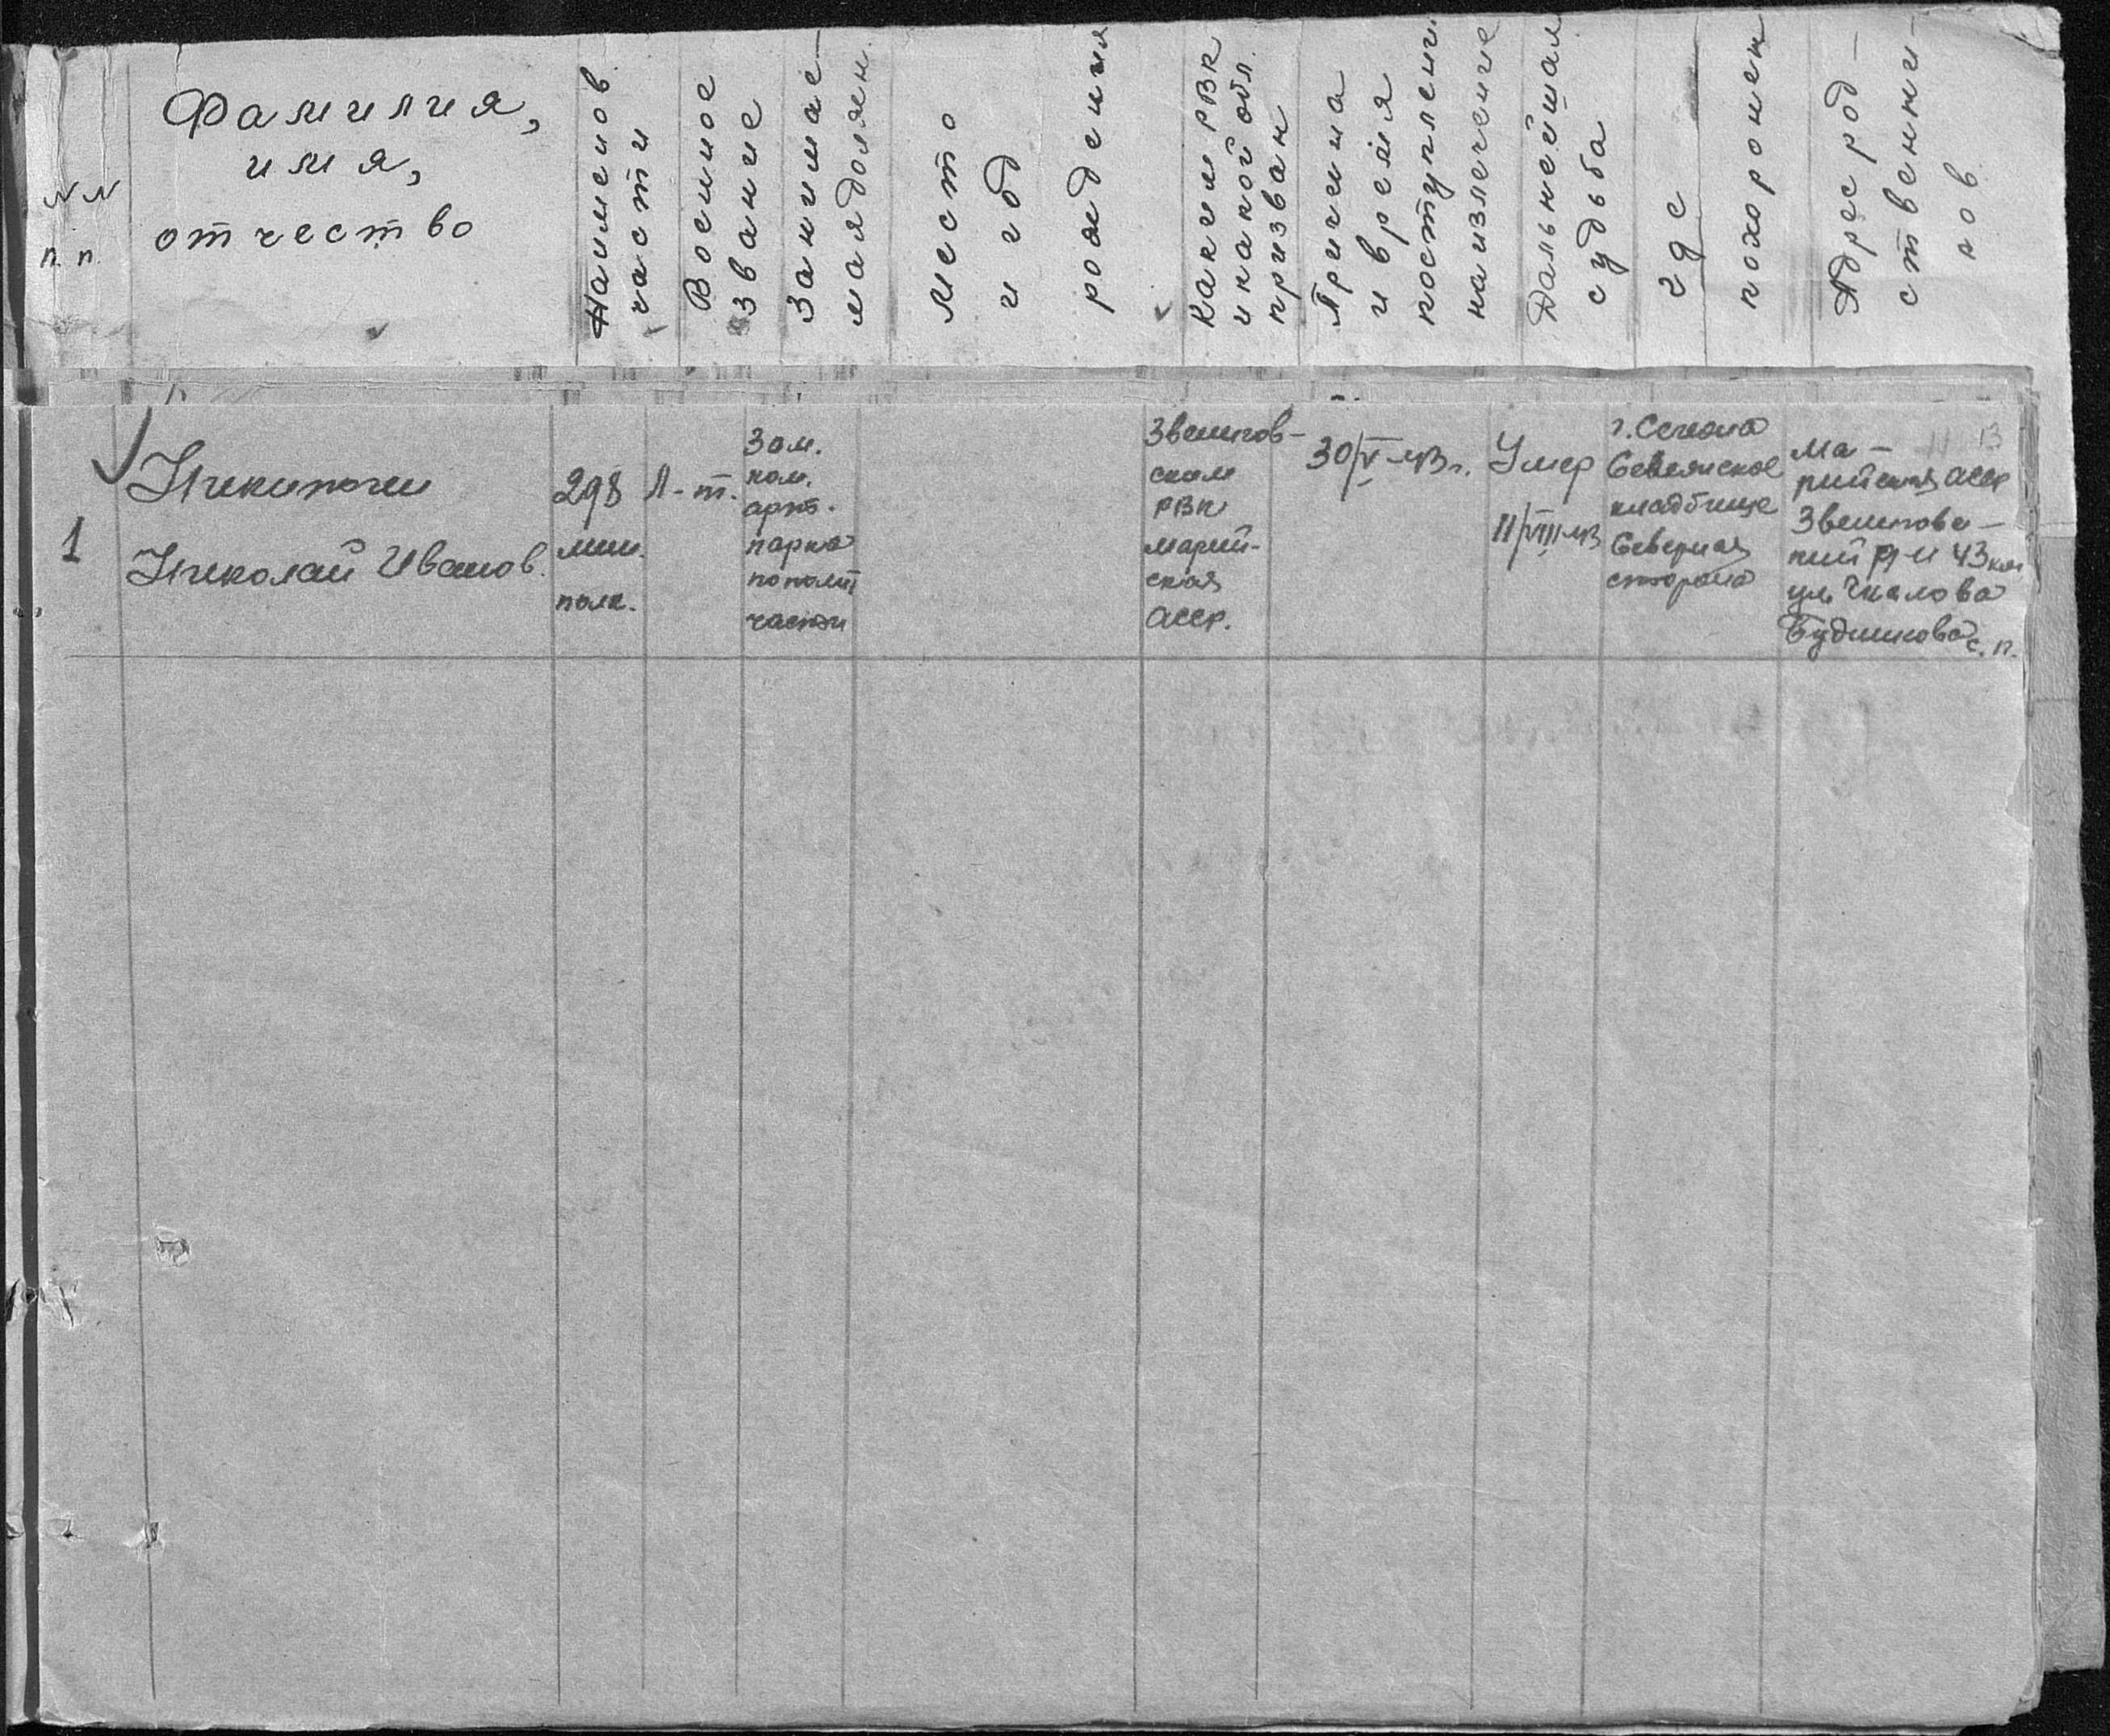 N N
п. п.
Фамилия,
имя,
отчество
Наименов
части
Военное
звание
Занимае-
мая должн.
Место
и год
рождения
Каким РВК
и какой обл.
призван
Причина
и время
поступлени
на излечение
Дальнейшая
судьба
где
похоронен
Адрес род-
ственни-
ков
1
Николай Иванов.
298
мин.
полк.
Л-т.
Зам.
ком.
арт.
парка
по полит
части
Звенигов-
ским
РВК
Марий-
ская
АССР.
30/V-43 г.
Умер
11/VIII-43
кладбище
Северная
сторона
Ма-
рийская АССР
Звенигов-
кий р-н 43 км
ул. Чкалова
с. п.